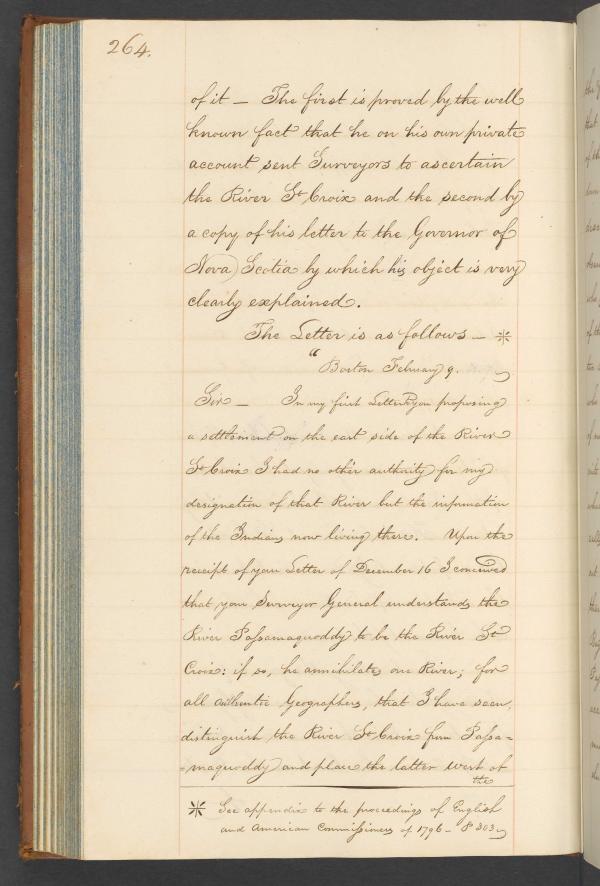 264.
of it — The first is proved by the well
known fact that he on his own private
account sent Surveyors to ascertain
the River St Croix and the second by
a copy of his letter to the Governor of
Nova Scotia by which his object is very
clearly explained.
The Letter is as follows — *
"Boston February 9.
Sir — In my first Letter to you proposing
a settlement on the east side of the River
St Croix I had no other authority for my
designation of that River but the information
of the Indians now living there. Upon the
receipt of your Letter of December 16 I conceived
that your Surveyor General understands the
River Passamaquoddy to be the River St
Croix: if so, he annihilates one River; for
all authentic Geographers, that I have seen,
distinguish the River St Croix from Passa=
=maquoddy and place the latter west of
the
* See appendix to the proceedings of English
and American Commissioners of 1796 — P 303